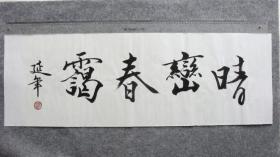 晴巒春靄
延年